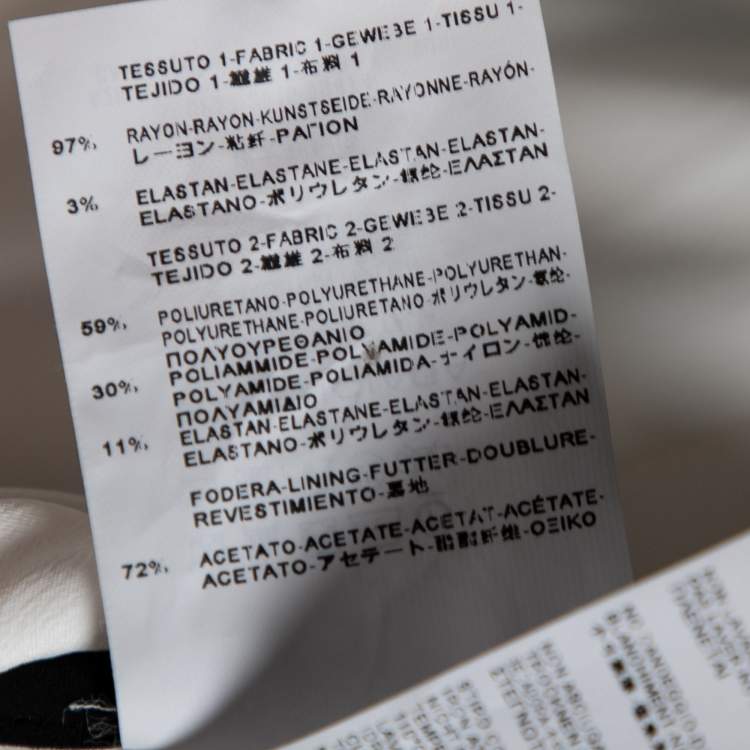 TESSUTO 1-FABRIC 1-GEWEBE 1-TISSU 1-
TEJIDO 1-繊維 1-布料 1
97% RAYON-RAYON-KUNSTSEIDE-RAYONNE-RAYÓN-
レーヨン-粘纤-ΡΑΓΙΟΝ
3% ELASTAN-ELASTANE-ELASTAN-ELASTAN-
ELASTANO-ポリウレタン-氨纶-ΕΛΑΣΤΑΝ
TESSUTO 2-FABRIC 2-GEWEBE 2-TISSU 2-
TEJIDO 2-繊維 2-布料 2
59% POLIURETANO-POLYURETHANE-POLYURETHAN-
POLYURETHANE-POLIURETANO-ポリウレタン-氨纶-
ΠΟΛΥΟΥΡΕΘΑΝΙΟ
30% POLIAMMIDE-POLYAMIDE-POLYAMID-
POLYAMIDE-POLIAMIDA-ナイロン-锦纶-
ΠΟΛΥΑΜΙΔΙΟ
11% ELASTAN-ELASTANE-ELASTAN-ELASTAN-
ELASTANO-ポリウレタン-氨纶-ΕΛΑΣΤΑΝ
FODERA-LINING-FUTTER-DOUBLURE-
REVESTIMIENTO-裏地
72% ACETATO-ACETATE-ACETAT-ACÉTATE-
ACETATO-アセテート-醋酯纤维-ΟΞΙΚΟ